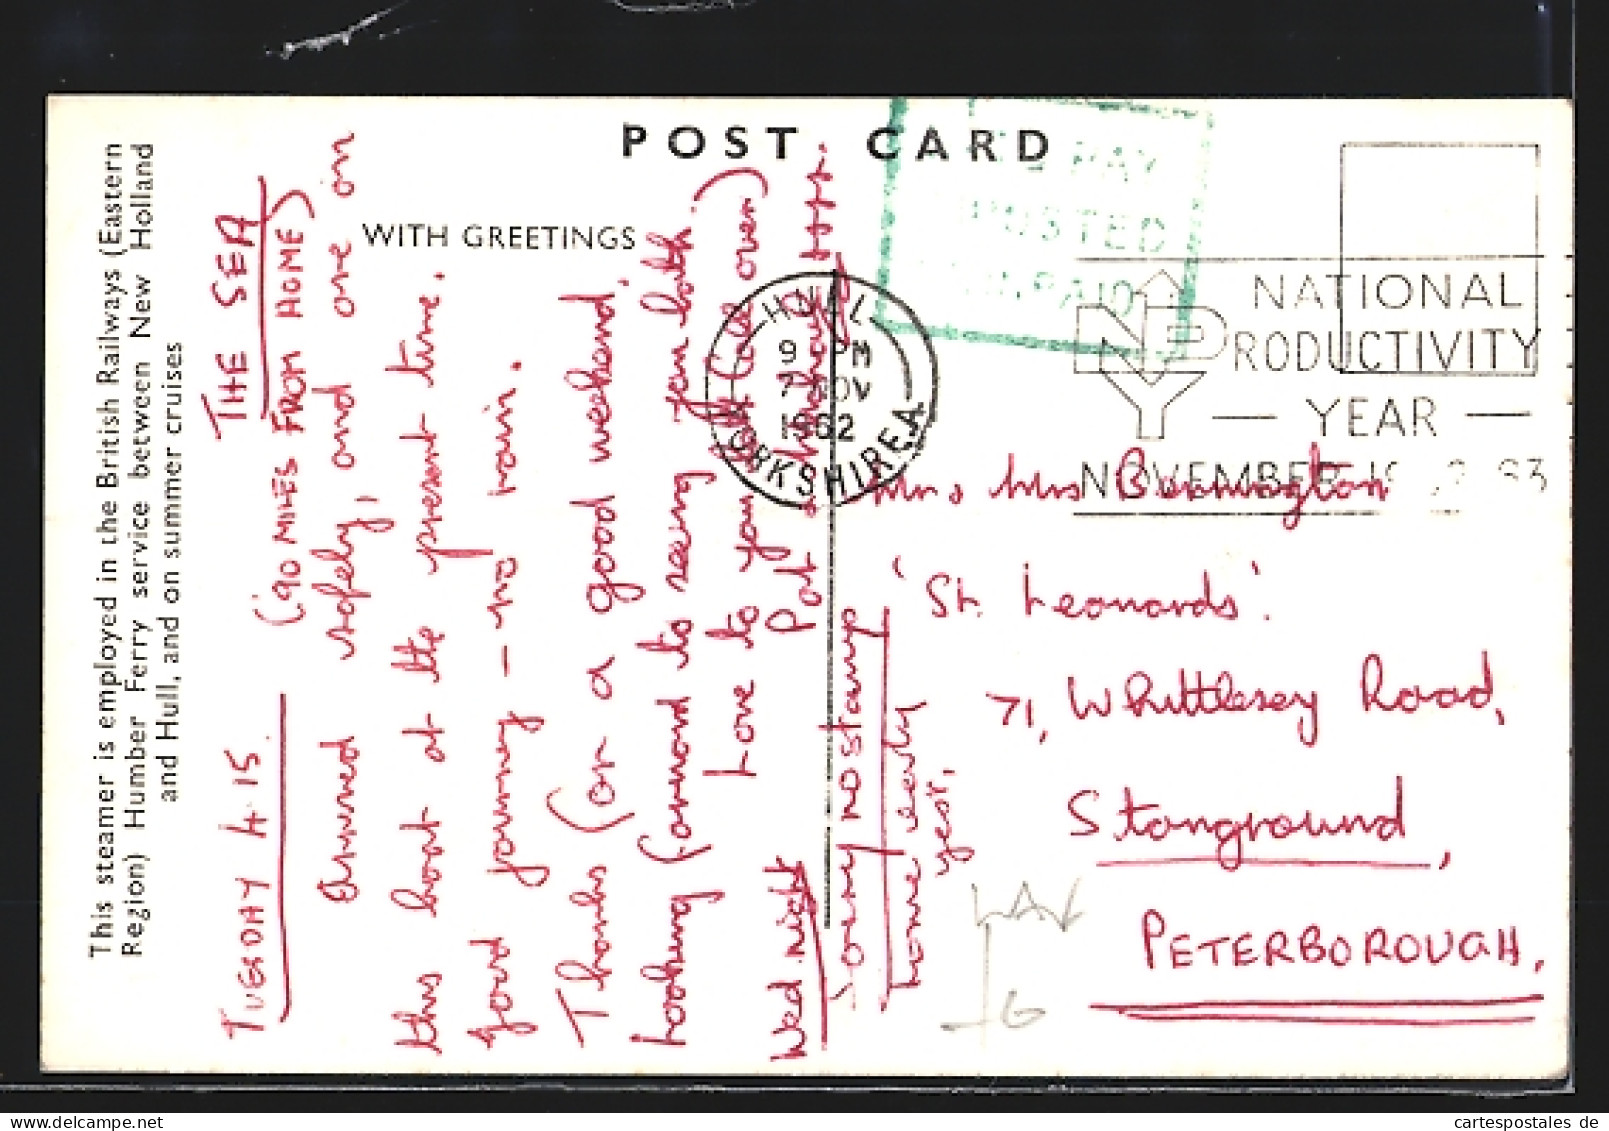 This steamer is employed in the British Railways (Eastern
Region) Humber Ferry service between New Holland
and Hull, and on summer cruises
POST CARD
WITH GREETINGS
TUESDAY 4.15. THE SEA
('90 MILES FROM HOME)
Arrived safely, and are on
this boat at the present time.
Good journey – no rain.
Thanks for a good weekend,
looking forward to seeing you both.
Love to you both Cole over)
Pat
Wed. night
Sorry no stamp
home early
yes.
PAY
POSTED
UNPAID
HULL
9 PM
7 NOV
1962
YORKSHIRE A
NPY
NATIONAL
PRODUCTIVITY
YEAR
NOVEMBER
Mr & Mrs Bonnington
'St. Leonards'.
71, Whittlesey Road,
Stanground,
PETERBOROUGH.
cartespostales de